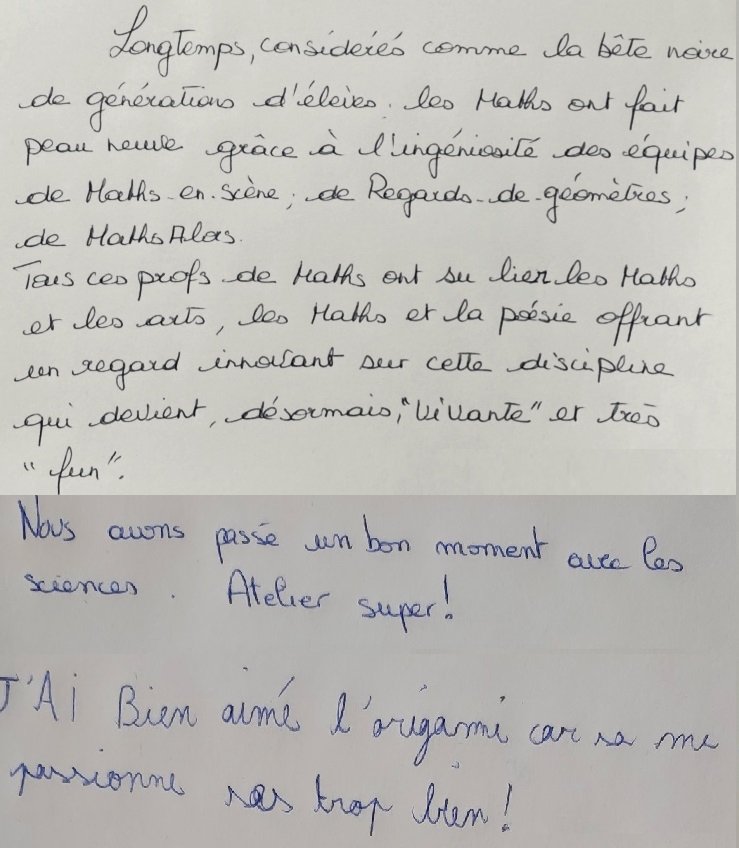 Longtemps, considérés comme la bête noire
de générations d'élèves. les Maths ont fait
peau neuve grâce à l'ingéniosité des équipes
de Maths-en-scène; de Regards-de-géomètres;
de Maths Alors.
Tous ces profs de Maths ont su lier les Maths
et les arts, les Maths et la poésie offrant
un regard innovant sur cette discipline
qui devient, désormais, "Vivante" et très
"fun".
Nous avons passé un bon moment avec les
sciences. Atelier super!
J'Ai Bien aimé l'origami car sa me
passionne trop bien!